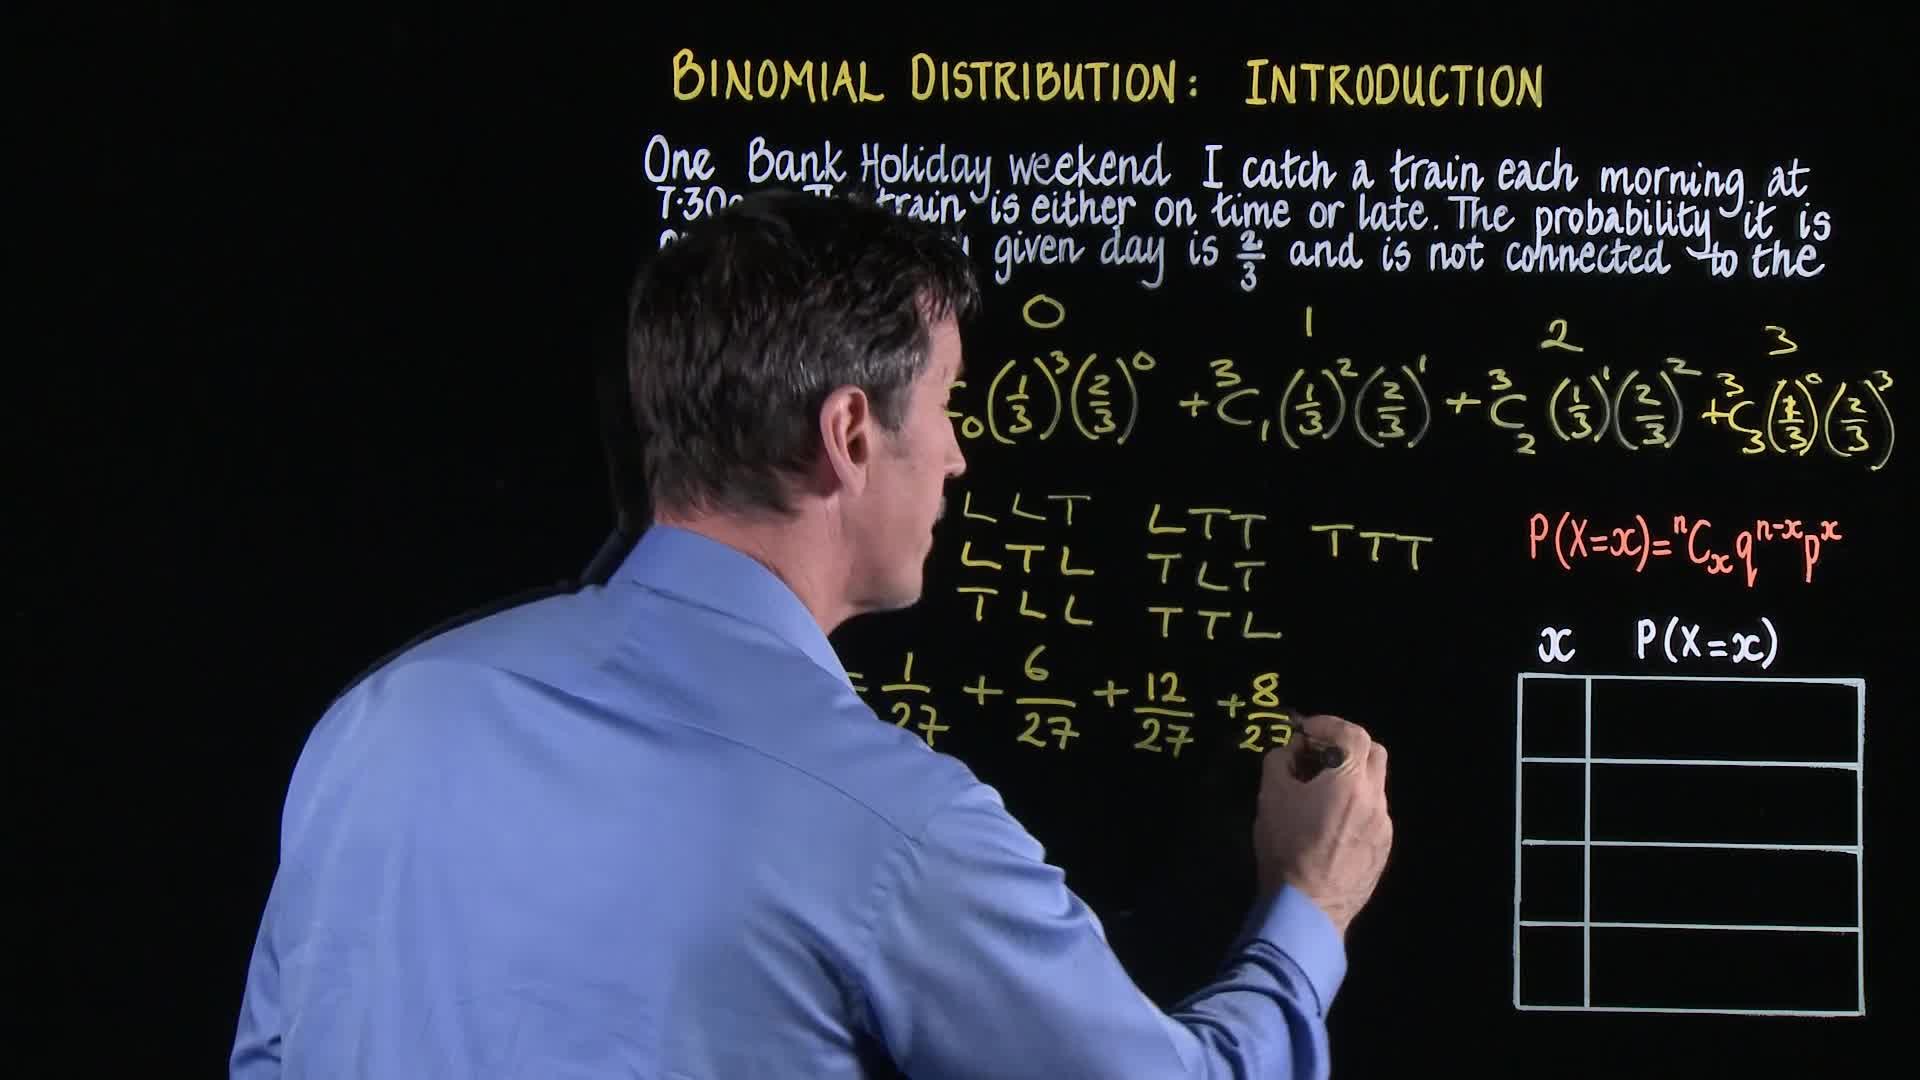 BINOMIAL DISTRIBUTION: INTRODUCTION
One Bank Holiday weekend I catch a train each morning at
7.30 train is either on time or late. The probability it is
given day is 2/3 and is not connected to the
0 1 2 3
0 (1/3)³ (2/3)⁰ + ³C₁ (1/3)² (2/3)¹ + ³C₂ (1/3)¹ (2/3)² + ³C₃ (1/3)⁰ (2/3)³
LLT LTT TTT
LTL TLT
TLL TTL
P(X=x) = ⁿCₓ qⁿ⁻ˣ pˣ
x P(X=x)
= 1/27 + 6/27 + 12/27 + 8/27